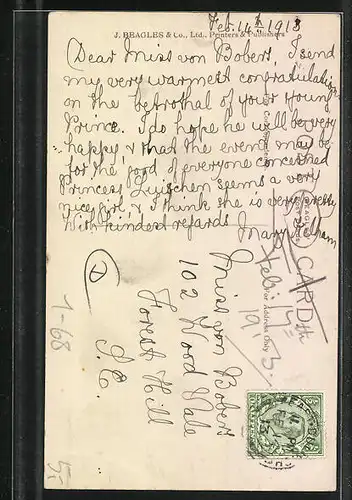 Feb. 14th 1913
J. BEAGLES & Co., Ltd., Printers & Publishers
Dear Miss von Bobers, I send
my very warmest congratulations
on the betrothal of your young
Prince. I do hope he will be very
happy & that the event may be
for the good of everyone concerned
Princess Luischem seems a very
nice girl, & I think she is very
With kindest regards Mary
CARD
Feb. 14th
1913.
Miss von Bobers
102 Wood Vale
Forest Hill
S.E.
1-68